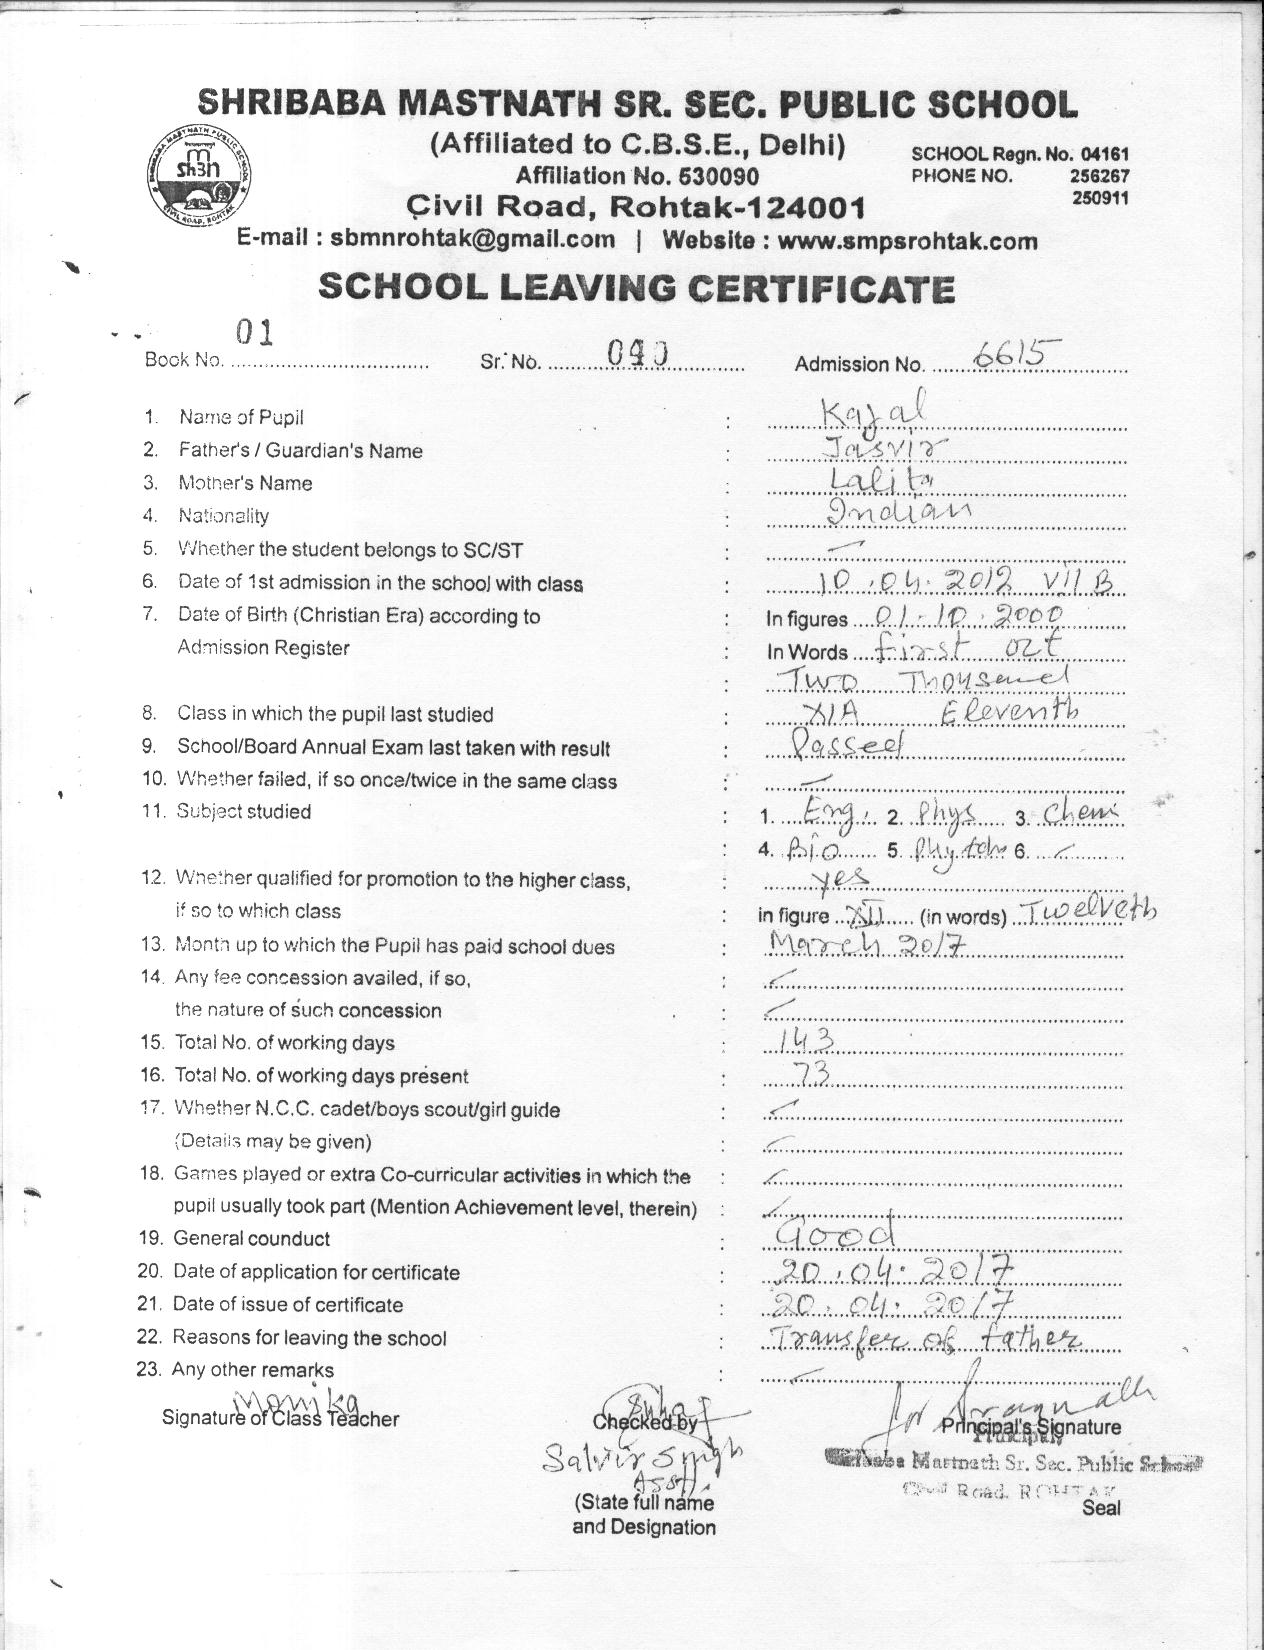 SHRIBABA MASTNATH SR. SEC. PUBLIC SCHOOL
(Affiliated to C.B.S.E., Delhi)
SCHOOL Regn. No. 04161
Affiliation No. 530090
PHONE NO. 256267
250911
Civil Road, Rohtak-124001
E-mail : sbmnrohtak@gmail.com | Website : www.smpsrohtak.com
SCHOOL LEAVING CERTIFICATE
Book No. 01 Sr. No. 040 Admission No. 6615
1. Name of Pupil : Kajal
2. Father's / Guardian's Name : Jasvir
3. Mother's Name : Lalita
4. Nationality : Indian
5. Whether the student belongs to SC/ST :
6. Date of 1st admission in the school with class : 10.04.2012 VII B
7. Date of Birth (Christian Era) according to : In figures 01-10.2000
Admission Register : In Words first oct
: Two Thousand
8. Class in which the pupil last studied : XIA Eleventh
9. School/Board Annual Exam last taken with result : Passed
10. Whether failed, if so once/twice in the same class :
11. Subject studied : 1. Eng. 2. Phys 3. Chem
: 4. Bio 5. 6.
12. Whether qualified for promotion to the higher class, : yes
if so to which class : in figure XII (in words) Twelveth
13. Month up to which the Pupil has paid school dues : March 2017
14. Any fee concession availed, if so, :
the nature of such concession :
15. Total No. of working days : 143
16. Total No. of working days present : 73
17. Whether N.C.C. cadet/boys scout/girl guide :
(Details may be given) :
18. Games played or extra Co-curricular activities in which the :
pupil usually took part (Mention Achievement level, therein) :
19. General counduct : Good
20. Date of application for certificate : 20.04.2017
21. Date of issue of certificate : 20.04.2017
22. Reasons for leaving the school : Transfer of father
23. Any other remarks :
Monika
Signature of Class Teacher Checked by Principal's Signature
Principal
Mastnath Sr. Sec. Public School
Civil Road, ROHTAK
Seal
(State full name
and Designation